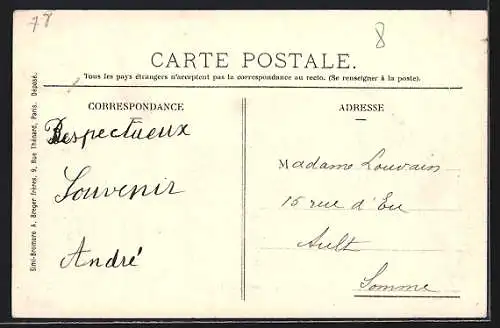 78
8
CARTE POSTALE.
Tous les pays étrangers n'acceptent pas la correspondance au recto. (Se renseigner à la poste).
CORRESPONDANCE
Respectueux
Souvenir
André
ADRESSE
Madame Louvain
15 rue d'Eu
Ault
Somme
Simi-Bromure A. Breger frères, 9, Rue Thénard, Paris. Déposé.